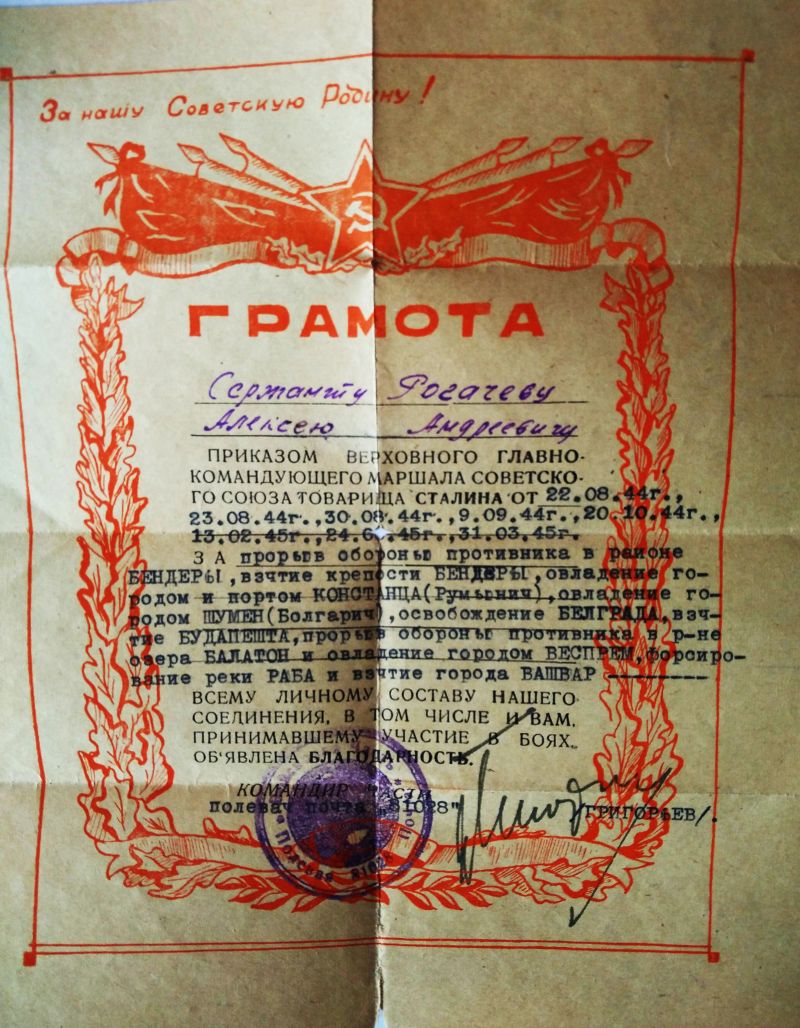 За нашу Советскую Родину!
ГРАМОТА
Сержанту Рогачеву
Алексею Андреевичу
ПРИКАЗОМ ВЕРХОВНОГО ГЛАВНО-
КОМАНДУЮЩЕГО МАРШАЛА СОВЕТСКО-
ГО СОЮЗА ТОВАРИЩА СТАЛИНА ОТ 22.08.44г.,
23.08.44г.,30.08.44г.,9.09.44г.,20.10.44г.,
13.02.45г.,24.03.45г.,31.03.45г.
ЗА прорыв обороны противника в районе
БЕНДЕРЫ,взчтие крепости БЕНДЕРЫ,овладение го-
родом и портом КОНСТАНЦА(Румыния),овладение го-
родом ШУМЕН(Болгарич),освобождение БЕЛГРАДА,взч-
тие БУДАПЕШТА,прорыв обороны противника в р-не
озера БАЛАТОН и овладение городом ВЕСПРЕМ,форсиро-
вание реки РАБА и взчтие города ВАШВАР
ВСЕМУ ЛИЧНОМУ СОСТАВУ НАШЕГО
СОЕДИНЕНИЯ, В ТОМ ЧИСЛЕ И ВАМ,
ПРИНИМАВШЕМУ УЧАСТИЕ В БОЯХ,
ОБ'ЯВЛЕНА БЛАГОДАРНОСТЬ.
КОМАНДИР ЧАСТИ
полевач почта "81028"
/ГРИГОРЬЕВ/.